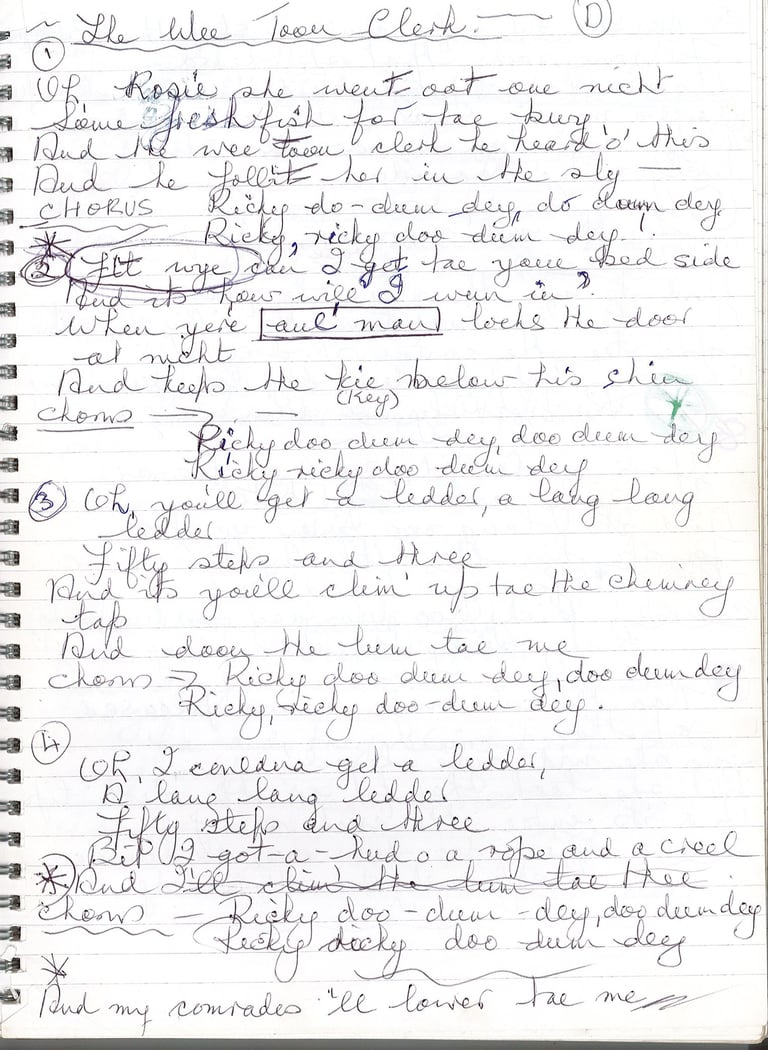 The Wee Toon Clerk. D
1
Oh Rosie she went oot one nicht
Some fresh fish for tae buy
And the wee toon clerk he heard 'o' this
And he follit her in the sly —
CHORUS Ricky do-dum dey, do dum dey
Ricky, ricky doo dum dey!
2 Fit wye can I get tae your bed side
And its how will I wun in"
When yere aul' man locks the door
at nicht
And keeps the kie below his chin
(Key)
Chorus —
Ricky doo dum dey, doo dum dey
Ricky ricky doo dum dey
3 Oh, you'll get a ledder, a lang lang
ledder
Fifty steps and three
And its you'll clim' up tae the chimney
tap
And doon the lum tae me
Chorus → Ricky doo dum dey, doo dum dey
Ricky, ricky doo-dum dey.
4
Oh, I couldna get a ledder,
A lang lang ledder
Fifty steps and three
But I got a haud o a rope and a creel
And I'll clim' the lum tae thee.
Chorus — Ricky doo-dum-dey, doo dum dey
Ricky ricky doo dum dey
And my comrades 'll lower tae me